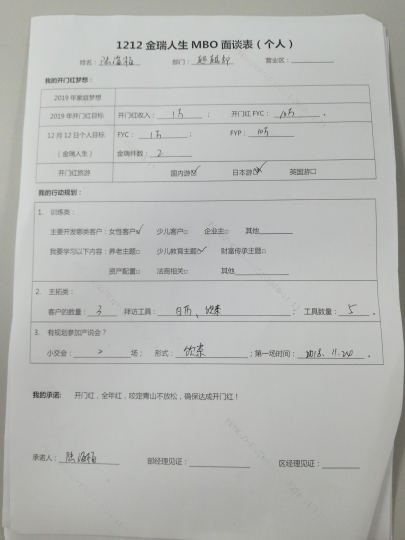 1212 金瑞人生 MBO 面谈表（个人）
姓名： 部门： 营业区：
我的开门红梦想：
2019 年家庭梦想
2019 年开门红目标 开门红收入： 1万 ； 开门红 FYC： 10万 。
12 月 12 日个人目标 FYC： 1万 ； FYP： 10万
（金瑞人生） 金瑞件数： 2
开门红旅游 国内游☑ 日本游☑ 英国游□
我的行动规划：
1. 训练类：
主要开发哪类客户：女性客户☑ 少儿客户□ 企业主□ 其他
我要学习以下内容：养老主题□ 少儿教育主题☑ 财富传承主题□
资产配置□ 法商相关□ 其他
2. 主拓类：
客户的数量： 3 拜访工具： 日历、 ；工具数量： 5 。
3. 有规划参加产说会？
小交会： 2 场； 形式： ；第一场时间： 2018.11.20 。
我的承诺: 开门红，全年红，咬定青山不放松，确保达成开门红！
承诺人： 部经理见证： 区经理见证：